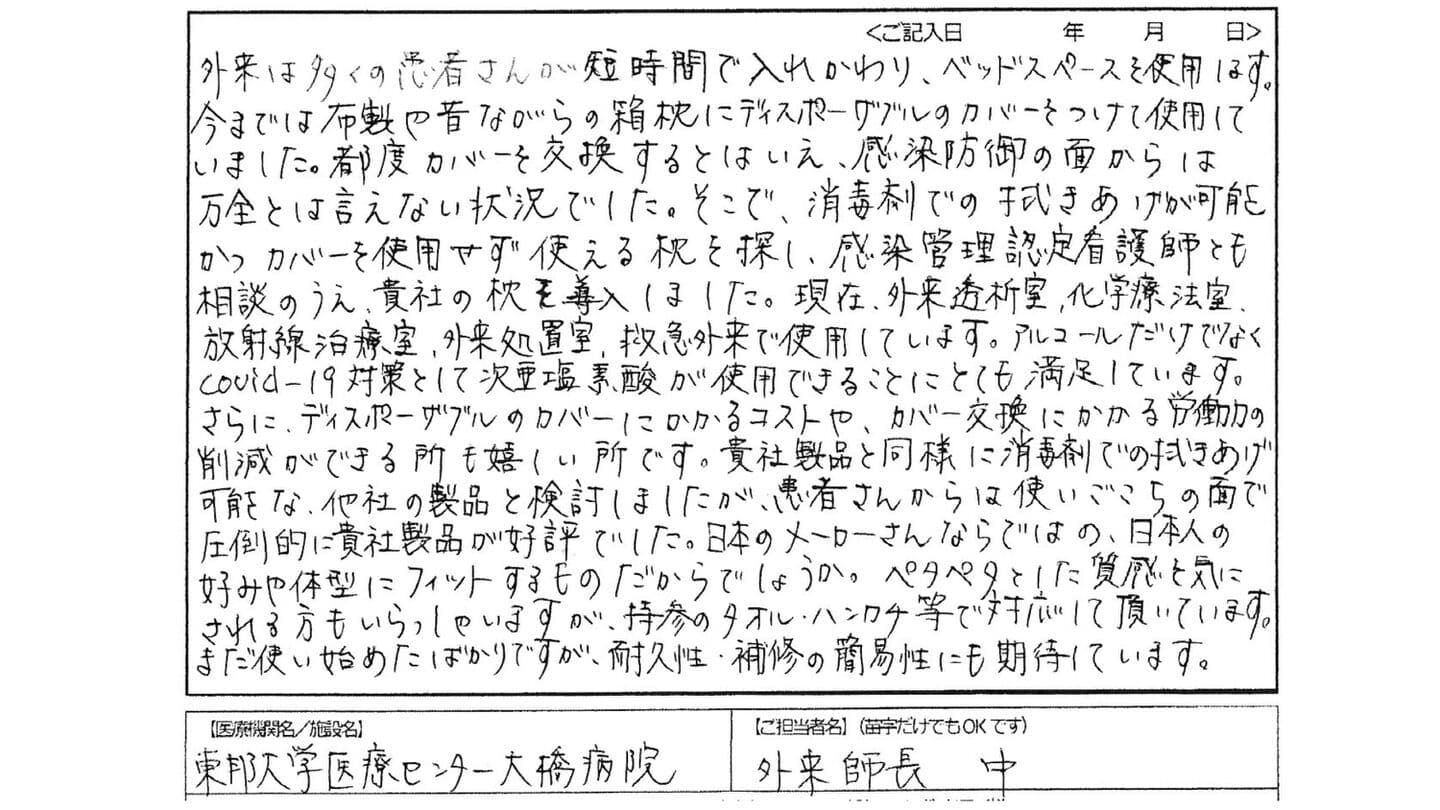 <ご記入日 年 月 日>
外来は多くの患者さんが短時間で入れかわり、ベッドスペースを使用します。
今までは布製や昔ながらの箱枕にディスポーザブルのカバーをつけて使用して
いました。都度カバーを交換するとはいえ、感染防御の面からは
万全とは言えない状況でした。そこで、消毒剤での拭きあげが可能
かつカバーを使用せず使える枕を探し、感染管理認定看護師とも
相談のうえ、貴社の枕を導入しました。現在、外来透析室、化学療法室、
放射線治療室、外来処置室、救急外来で使用しています。アルコールだけでなく
covid-19対策として次亜塩素酸が使用できることにとても満足しています。
さらに、ディスポーザブルのカバーにかかるコストや、カバー交換にかかる労働力の
削減ができる所も嬉しい所です。貴社製品と同様に消毒剤での拭きあげ
可能な、他社の製品と検討しましたが、患者さんからは使いごこちの面で
圧倒的に貴社製品が好評でした。日本のメーカーさんならではの、日本人の
好みや体型にフィットするものだからでしょうか。ペタペタとした質感を気に
される方もいらっしゃいますが、持参のタオル・ハンカチ等で対応して頂いています。
まだ使い始めたばかりですが、耐久性・補修の簡易性にも期待しています。
【医療機関名/施設名】
東邦大学医療センター大橋病院
【ご担当者名】(苗字だけでもOKです)
外来師長 中